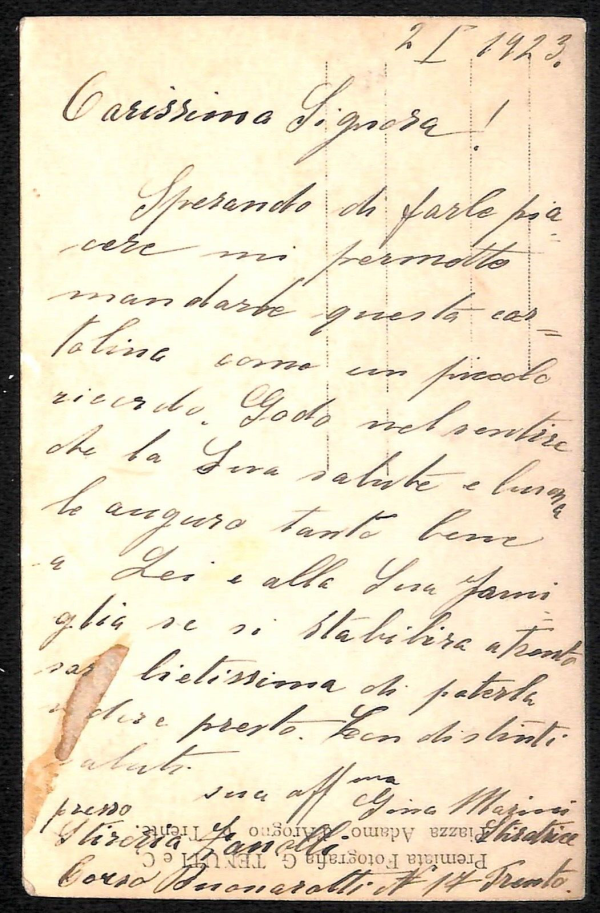 2 I 1923.
Carissima Signora!
Sperando di farle pia=
cere mi permetto
mandarle questa car=
tolina come un piccolo
ricordo. Godo nel sentire
che la Sua salute e buona
le auguro tanto bene
a Lei e alla Sua Fami=
glia se si stabilira a Trento
sar lietissima di poterla
vedere presto. Con distinti
saluti
sua aff ma Gina Marini
presso Stiratrice
Stireria Zanolli
Corso Buonarotti N 17 Trento.
Premiata Fotografia G. TENUTI e C.
Piazza Adamo d'Arogno - Trento.